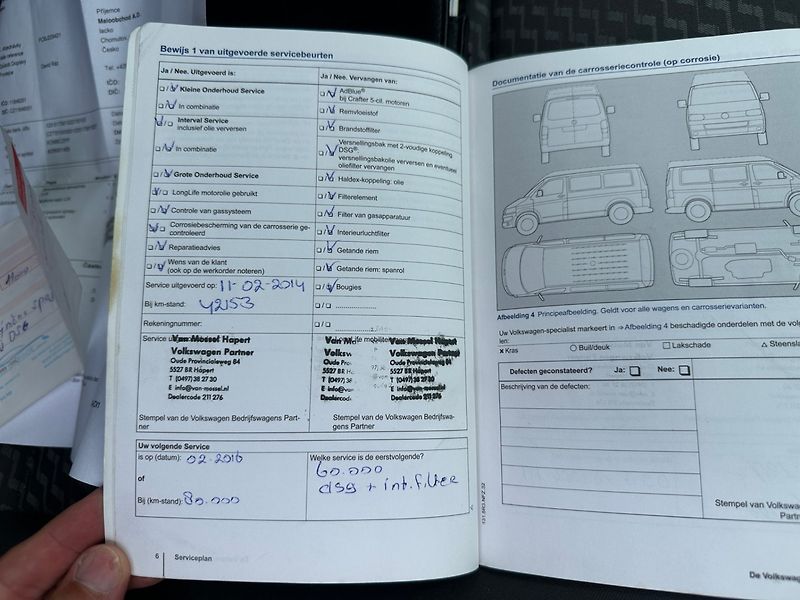 Příjemce
Česko
Bewijs 1 van uitgevoerde servicebeurten
Ja / Nee. Uitgevoerd is:
Kleine Onderhoud Service
In combinatie
Interval Service
inclusief olie verversen
In combinatie
Grote Onderhoud Service
LongLife motorolie gebruikt
Controle van gassysteem
Corrosiebescherming van de carrosserie ge-
controleerd
Reparatieadvies
Wens van de klant
(ook op de werkorder noteren)
Service uitgevoerd op: 11-02-2014
Bij km-stand: 42153
Rekeningnummer:
Ja / Nee. Vervangen van:
AdBlue®
bij Crafter 5-cil. motoren
Remvloeistof
Brandstoffilter
Versnellingsbak met 2-voudige koppeling
DSG®:
versnellingsbakolie verversen en eventueel
oliefilter vervangen
Haldex-koppeling: olie
Filterelement
Filter van gasapparatuur
Interieurluchtfilter
Getande riem
Getande riem: spanrol
Bougies
Van Mossel Hapert
Volkswagen Partner
Oude Provincialeweg 84
5527 BR Hapert
T (0497) 38 27 30
E info@van-mossel.nl
Dealercode 211 276
Stempel van de Volkswagen Bedrijfswagens Part-
ner
Van Mossel Hapert
Volkswagen Partner
Oude Provincialeweg 84
5527 BR Hapert
T (0497) 38 27 30
Dealercode 211 276
Stempel van de Volkswagen Bedrijfswa-
gens Partner
Uw volgende Service
is op (datum): 02-2016
of
Bij (km-stand): 80.000
Welke service is de eerstvolgende?
60.000
dsg + int. filter
6 Serviceplan
Documentatie van de carrosseriecontrole (op corrosie)
Afbeelding 4 Principeafbeelding. Geldt voor alle wagens en carrosserievarianten.
Uw Volkswagen-specialist markeert in → Afbeelding 4 beschadigde onderdelen met de
len:
Kras
Buil/deuk
Lakschade
Defecten geconstateerd? Ja: Nee:
Beschrijving van de defecten:
Stempel van
131.5R3.NFZ.32